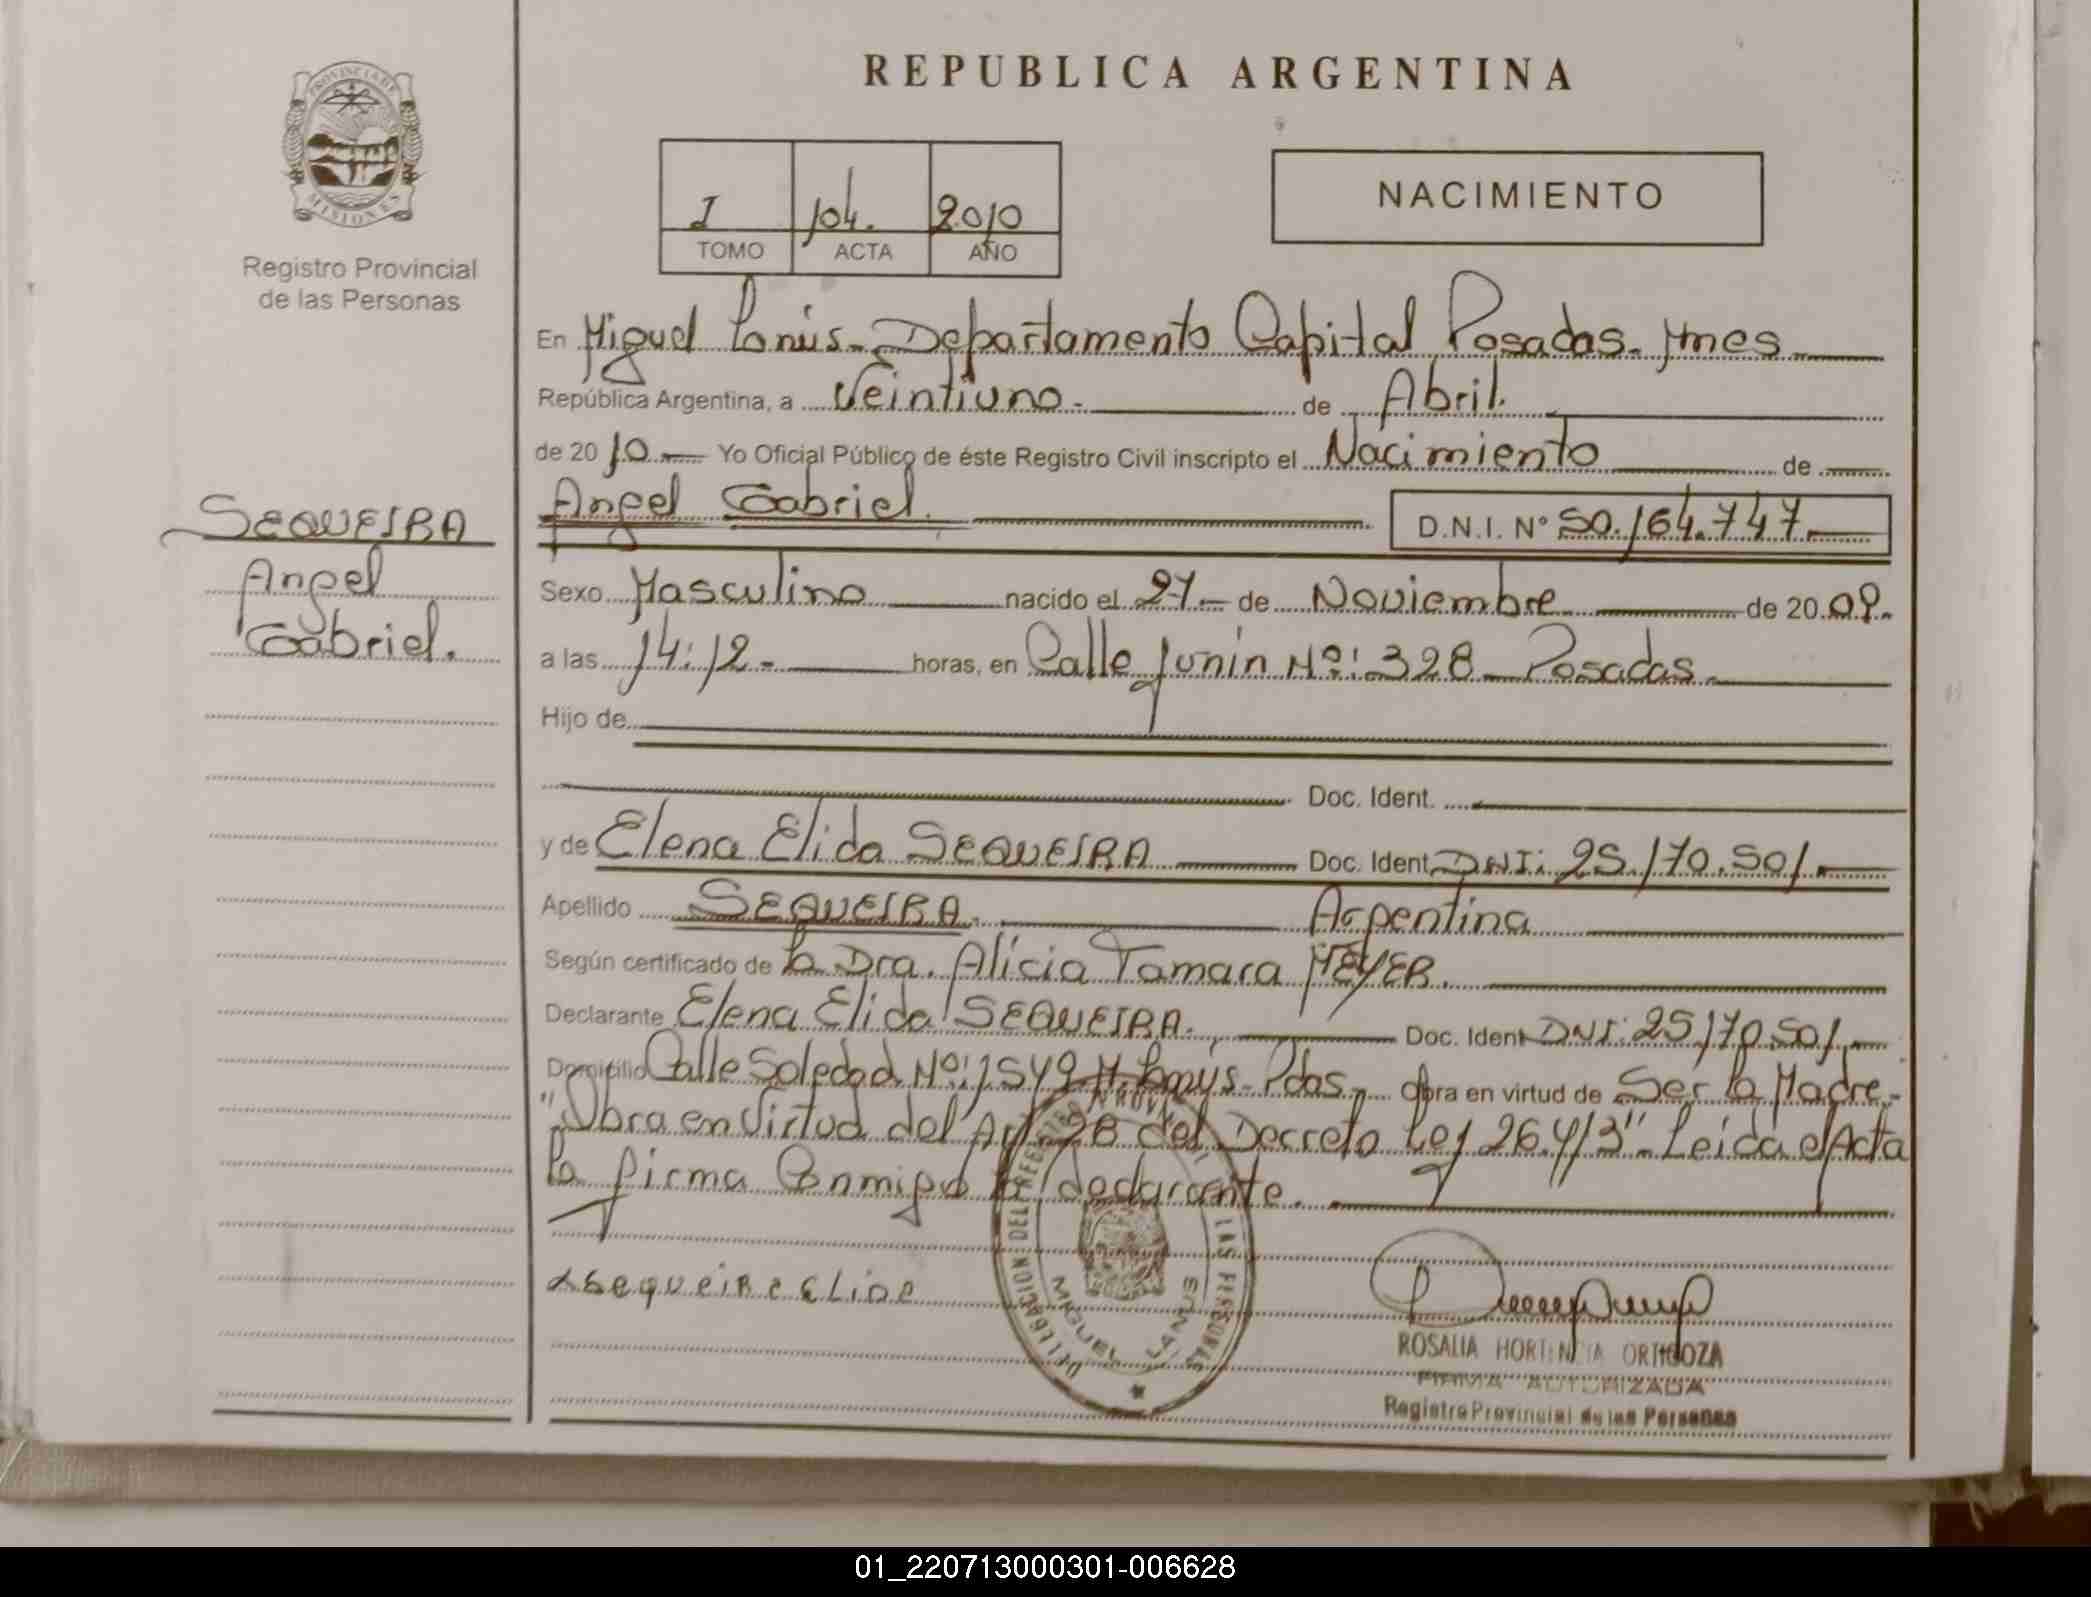 REPUBLICA ARGENTINA
PROVINCIA DE
MISIONES
Registro Provincial
de las Personas
I 104. 2010
TOMO ACTA AÑO
NACIMIENTO
En Miguel Lanús - Departamento Capital Posadas - Mnes
República Argentina, a Veintiuno - de Abril.
de 2010 - Yo Oficial Público de éste Registro Civil inscripto el Nacimiento de
SEQUEIRA
Angel
Gabriel.
Angel Gabriel. D.N.I. Nº 50.164.747
Sexo Masculino nacido el 27 - de Noviembre de 2009.
a las 14:12 - horas, en Calle Junin Nº: 328 - Posadas.
Hijo de
Doc. Ident.
y de Elena Elida SEQUEIRA Doc. Ident. DNI: 25.170.501.
Apellido SEQUEIRA. Argentina
Según certificado de la Dra. Alicia Tamara MEYER.
Declarante Elena Elida SEQUEIRA. Doc. Ident DNI: 25170501.
Domicilio Calle Soledad Nº: 1549 M. Lanus - Pdas. Obra en virtud de Ser la Madre -
"Obra en Virtud del Art. 28 del Decreto Ley 26.413" - Leida el Acta
la firma Conmigo la declarante.
Sequeira Elida
DELEGACION DEL REGISTRO PROVINCIAL LAS PERSONAS
MIGUEL LANUS
ROSALIA HORTENCIA ORTIGOZA
FIRMA AUTORIZADA
Registro Provincial de las Personas
01_220713000301-006628